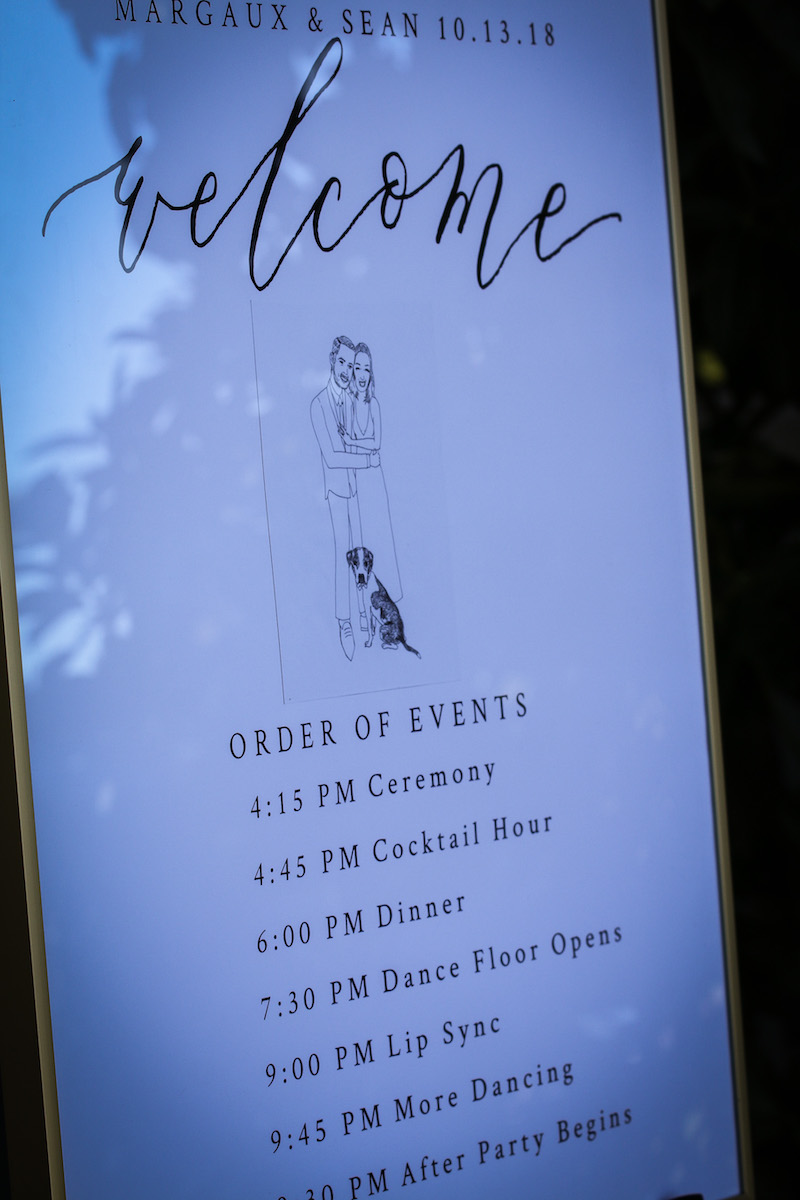 MARGAUX & SEAN 10.13.18
welcome
ORDER OF EVENTS
4:15 PM Ceremony
4:45 PM Cocktail Hour
6:00 PM Dinner
7:30 PM Dance Floor Opens
9:00 PM Lip Sync
9:45 PM More Dancing
PM After Party Begins